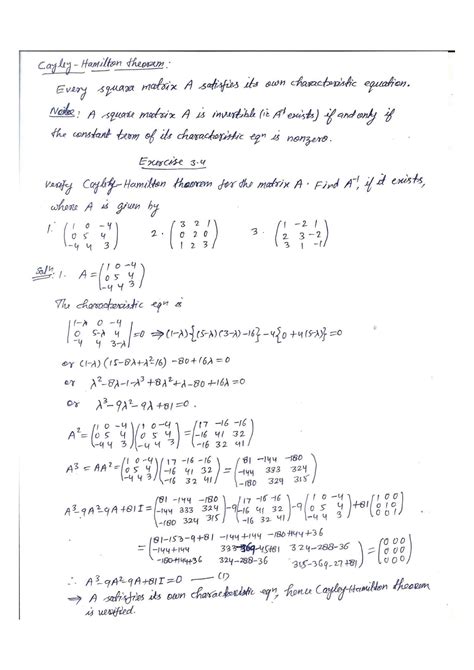 Cayley-Hamilton theorem:
Every square matrix A satisfies its own characteristic equation.
Note: A square matrix A is invertible (ie A⁻¹ exists) if and only if
the constant term of its characteristic eqn is nonzero.
Exercise 3.4
Verify Cayley-Hamilton theorem for the matrix A. Find A⁻¹, if it exists,
where A is given by
1. (1 0 -4
0 5 4
-4 4 3) 2. (3 2 1
0 2 0
1 2 3) 3. (1 -2 1
2 3 -2
3 1 -1)
Soln: 1. A = (1 0 -4
0 5 4
-4 4 3)
The characteristic eqn is
|1-λ 0 -4
0 5-λ 4
-4 4 3-λ| = 0 ⇒ (1-λ){(5-λ)(3-λ)-16} -4{0+4(5-λ)} = 0
or (1-λ)(15-8λ+λ²-16) -80+16λ = 0
or λ²-8λ-1-λ³+8λ²+λ-80+16λ = 0
or λ³-9λ²-9λ+81 = 0.
A² = (1 0 -4
0 5 4
-4 4 3)(1 0 -4
0 5 4
-4 4 3) = (17 -16 -16
-16 41 32
-16 32 41)
A³ = AA² = (1 0 -4
0 5 4
-4 4 3)(17 -16 -16
-16 41 32
-16 32 41) = (81 -144 -180
-144 333 324
-180 324 315)
A³-9A²-9A+81I = (81 -144 -180
-144 333 324
-180 324 315) -9(17 -16 -16
-16 41 32
-16 32 41) -9(1 0 -4
0 5 4
-4 4 3) +81(1 0 0
0 1 0
0 0 1)
= (81-153-9+81 -144+144 -180+144+36
-144+144 333-369-45+81 324-288-36
-180+144+36 324-288-36 315-369-27+81) = (0 0 0
0 0 0
0 0 0)
∴ A³-9A²-9A+81I = 0 —— (1)
⇒ A satisfies its own characteristic eqn, hence Cayley-Hamilton theorem
is verified.